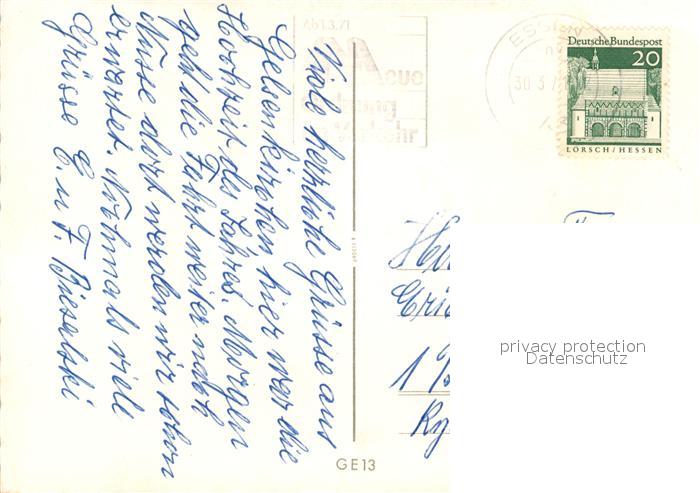 Viele herzliche Grüsse aus
Gelsenkirchen hier war die
Hochzeit des Jahres. Morgen
geht die Fahrt weiter nach
Neusse dort werden wir schon
erwartet. Nochmals viel
Grüsse E. u F. Bieselski
Ab 1.3.71
ESSEN
30.3.7
Deutsche Bundespost
20
LORSCH/HESSEN
privacy protection
Datenschutz
GE13